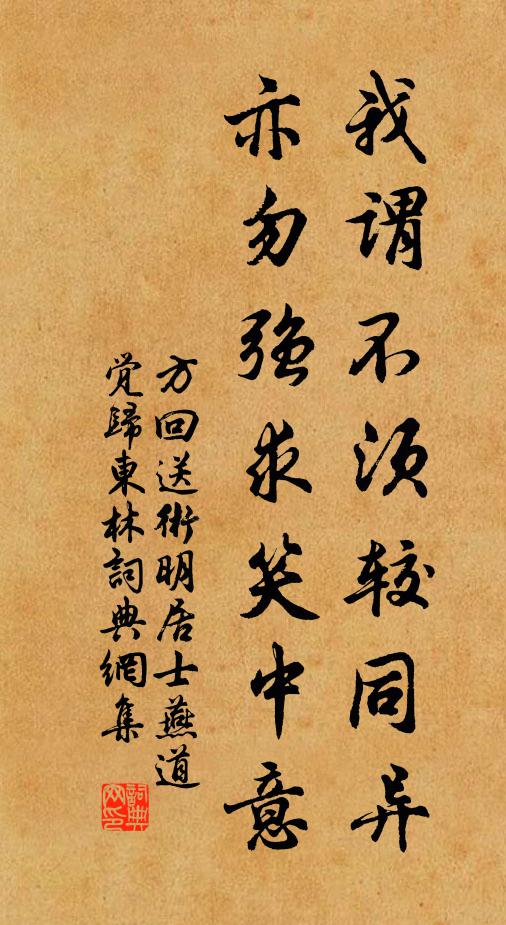 我谓不须较同异
亦勿强求笑中意
方回送術明居士燕道
觉歸東林詞典網集
詞典网印